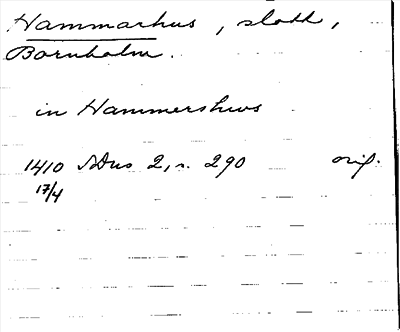 Hammarhus, slott,
Bornholm.
in Hammershws
1410 SDns 2, s. 290 orig.
17/4